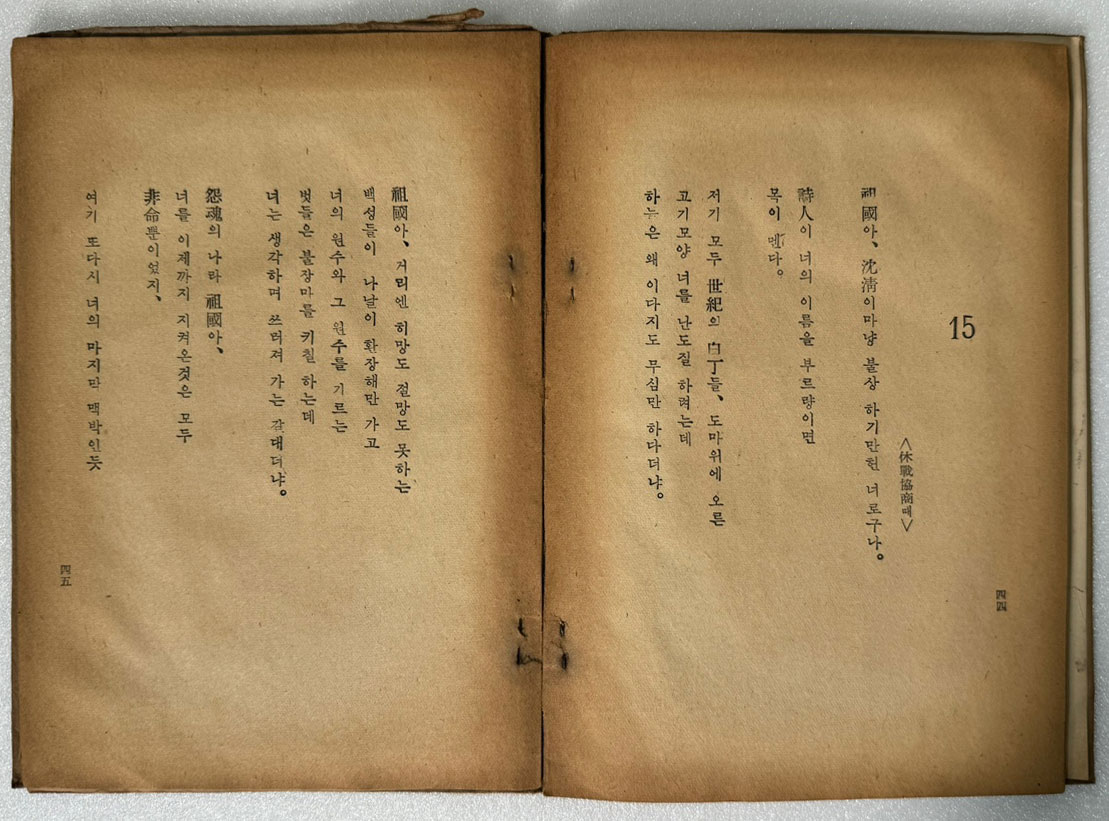 15
〈休戰協商때〉
祖國아、沈淸이마냥 불상 하기만헌 너로구나。
詩人이 너의 이름을 부르량이면
목이 멘다。
저기 모두 世紀의 白丁들、도마위에 오른
고기모양 너를 난도질 하려는데
하늘은 왜 이다지도 무심만 하다더냐。
四四
祖國아、거리엔 히망도 절망도 못하는
백성들이 나날이 환장해만 가고
너의 원수와 그 원수를 기르는
벗들은 불장마를 키질 하는데
너는 생각하며 쓰러져 가는 갈대더냐。
怨魂의 나라 祖國아、
너를 이제까지 지켜온것은 모두
非命뿐이었지、
여기 또다시 너의 마지막 맥박인듯
四五